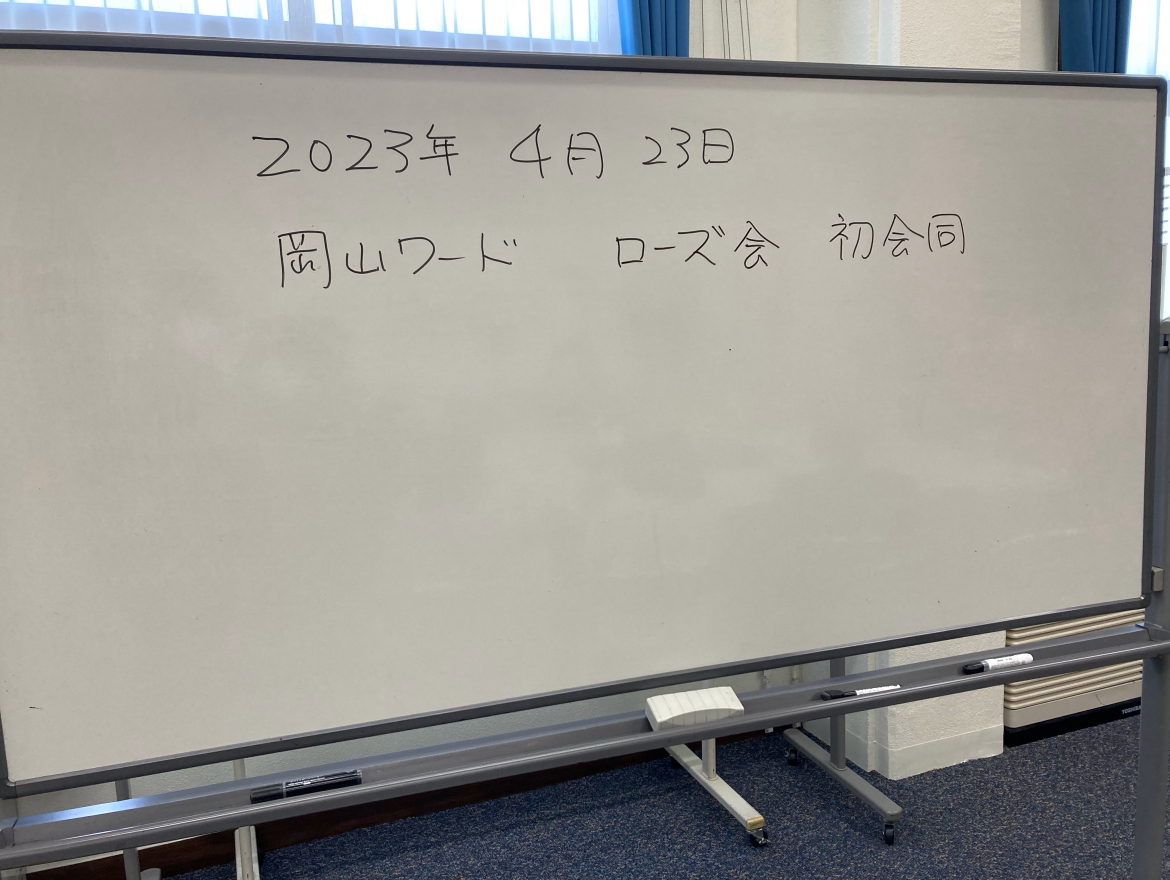 2023年 4月 23日
岡山ワード ローズ会 初会同
TOSHIBA